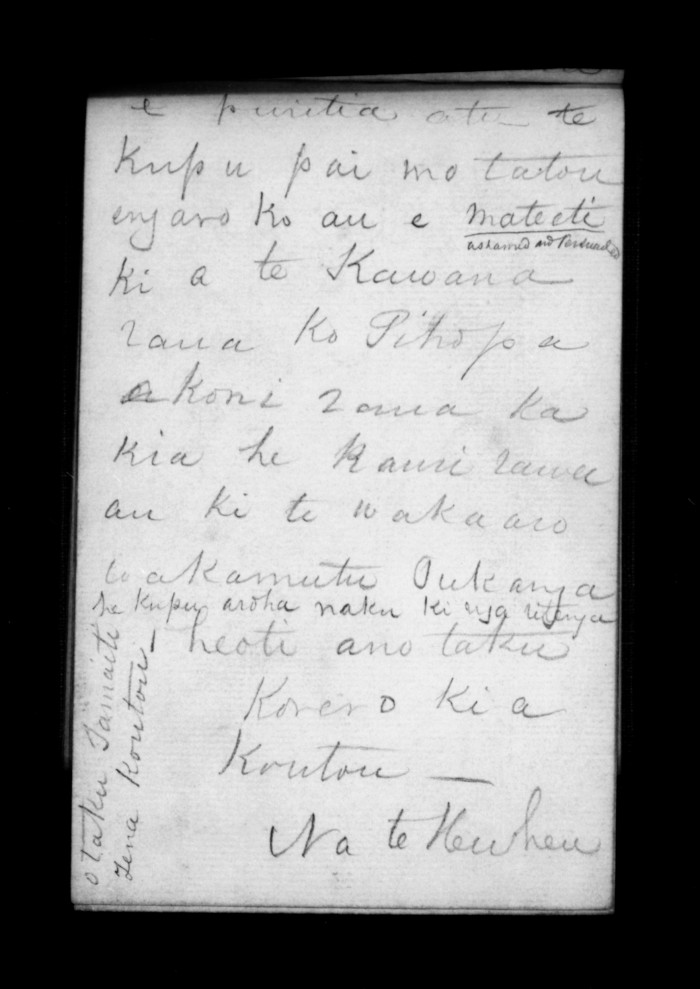 e puritia atu te
Kupu pai mo tatou
engaro Ko au e mateeti
ashamed and Persuaded
ki a te Kawana
raua Ko Pihopa
akoni raua ka
kia he kauri rawa
au ki te wakaaro
wakamutu Oukanga
he Kupu aroha naku ki nga ritenga
heoti ano taku
Korero Ki a
Koutou —
Na te Heuheu
o taku Tamaiti
Tena Koutou